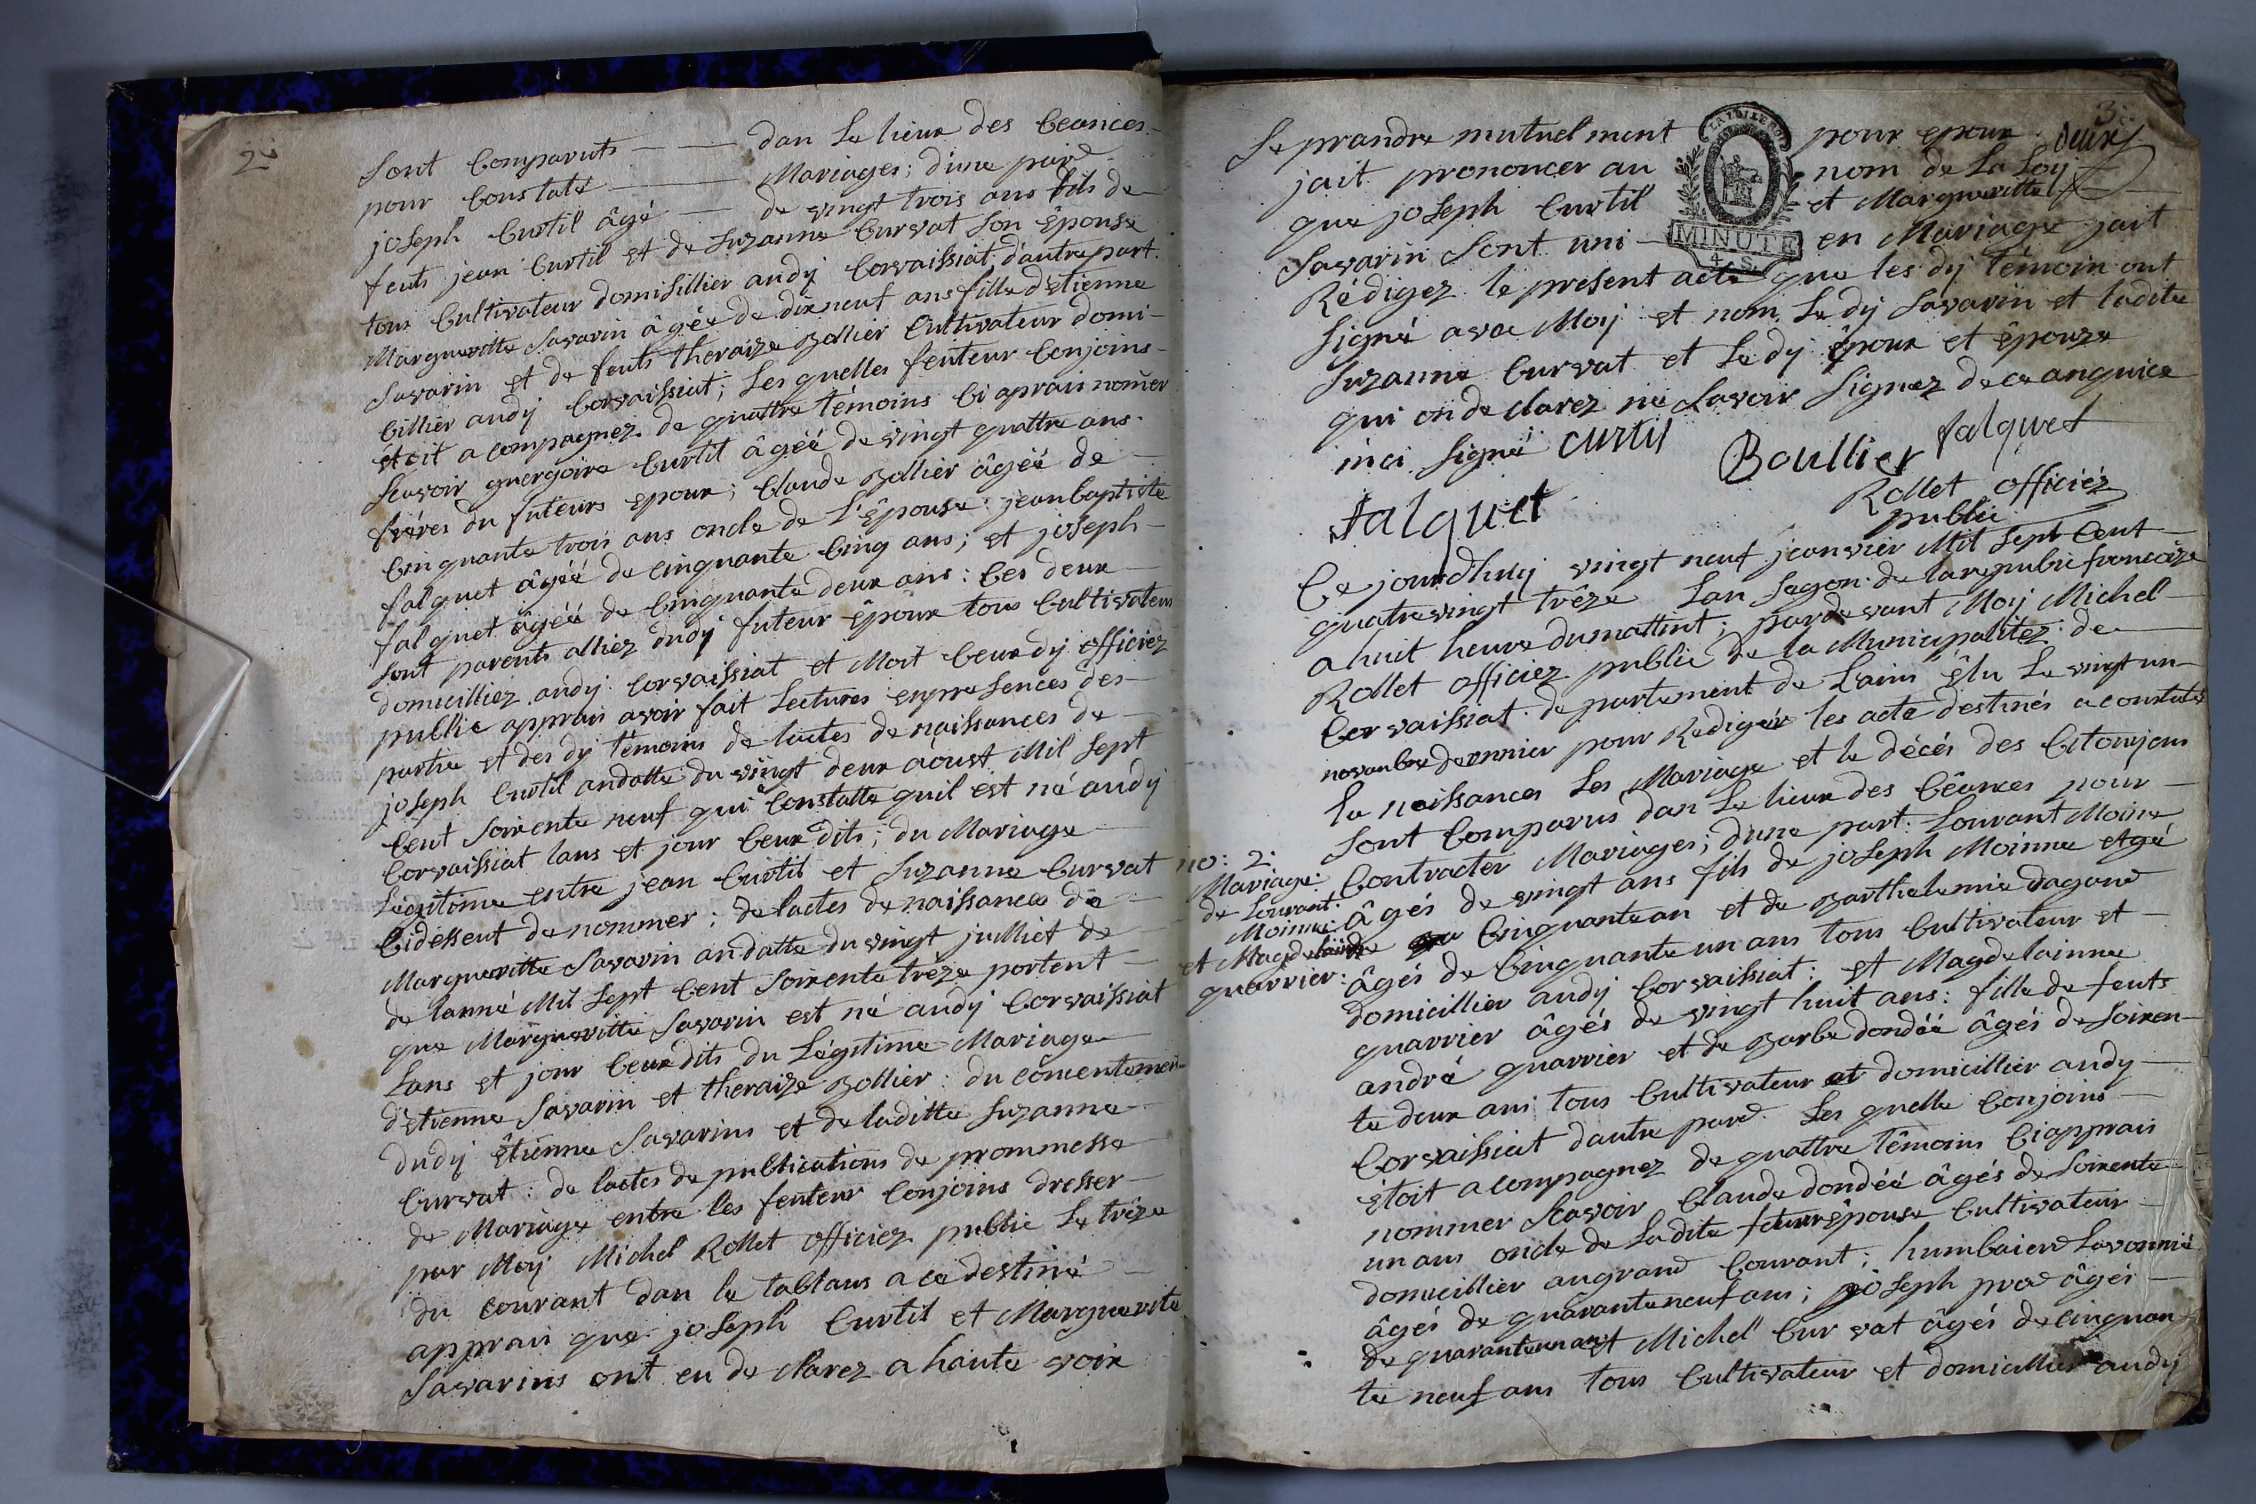 2e
sont Comparuts —— dan Le lieux des Ceances
pour Constaté —— Mariages; d'une pard
joseph Curtil âgé —— de vingt trois ans fils de
feuts jean Curtil et de Suzanne Curvat son Epouse
tous Cultivateur domisillier audÿ Corvaissiat d'autrepart
Margueritte Savarin âgée de dixneuf ans fille d'Etienne
Savarin et de feuts theraize Bollier Cultivateur domi-
cillier audÿ Corvaissiat; Les quelles feuteur Conjoins
etoit acompagnez de quattre témoins Ci aprais nommer
scavoir guergoire Curtil âgéé de vingt quattre ans
fréres du futeurs epoux; Claude Bollier âgéé de
Cinquante trois ans oncle de L'Epouse jeanbaptiste
falquet âgéé de cinquante Cinq ans; et joseph
falquet âgéé de Cinquante deux ans: Ces deux
sont parents alliez dudÿ futeur Epoux tous Cultivateur
domicilliez audÿ Corvaissiat et Moit Ceux dÿ officiez
public apprais avoir fait Lectures enpresences des
partie et des dÿ témoins de lactes de naissances de
joseph Curtil andatte du vingt deux aoust Mil sept
Cent soixente neuf qui Constatte quil est né audÿ
Corvaissiat lans et jour Ceux dits; du Mariage
Légitome entre jean Curtil et Suzanne Curvat
Cidessent de nommer: de lactes de naissances de
Margueritte Savarin andatte du vingt julliet de
de lanné Mil sept Cent soixente trêze portent
que Margueritte Savarin est né audÿ Corvaissiat
Lans et jour Ceux dits du Légitime Mariage
d'etienne Savarin et theraize Bollier: du consentemen-
dudÿ êtienne Savarins et de laditte Suzanne
Curvat: de lactes de publications de prommesse
de Mariage entre les feuteur Conjoins dresser
par Moÿ Michel Rollet officiez public Le trêze
du Courant dan le tablaus a ce destiné
apprais que joseph Curtil et Marguerite
Savarins ont eu de clarez a haute voix
3e
deux
LA LOI LE ROI
MINUTE
4. S.
Se prandre mutuelment pour epoux
jait prononcer au nom de La Loÿ
que joseph Curtil et Margueritte
Savarin sont uni — en Mariage jait
Rédigez le present acte que les dÿ témoin ont
signé avec Moÿ et nom Le dÿ Savarin et ladite
Suzanne Curvat et Le dÿ êpoux et êpouze
qui on declarez ne Savoir Signez de ce anquice
inci signé Curtil Boullier falquet
falquet
Rollet officiéz
public
Ce jourdhuÿ vingt neuf jeanvier Mil sept Cent
quatrevingt trêze Lan segon de larepublic francoize
a huit heure dumattint; pardevant Moÿ Michel
Rollet officiez public de la Municipalitez de
Corvaissiat departement de Lains êlu Le vingt un
novanbre dernnier pour Rediger les acte destinés a constatés
la naissances Les Mariage et le décés des Citoÿens
Sont Comparus dan Le lieux des Cêances pour
Contracter Mariages; dune part: Lourant Moine
âgés de vingt ans fils de joseph Moinne etgé
de Cinquante an et de Barthelemie dagond
âgés de Cinquante un ans tous Cultivateur et
domicillier audÿ Corvaissiat: et Magdelainne
quarrier âgés de vingt huit ans: fille de feuts
andré quarrier et de Barbe dondéé âgés de soixen-
te deux ans tous Cultivateur et domicillier audÿ
Corvaissiat dautre pard. Les quelle Conjoins
étoit acompagnez de quattre Témoins Ciapprais
nommer Scavoir Claude dondéé âgés de soixente
un ans oncle de Ladite futurr epouse Cultivateur
domicillier augrand Courant; humbaierd Lavonnié
âgés de quaranteneuf ans; joseph prod âgés
de quaranteunan et Michel Curvat âgés de cinquan-
te neuf ans tous Cultivateur et domicillier audÿ
no: 2:
Mariage:
de Lourant:
Moinne:
et Magdelaine
quarrier: